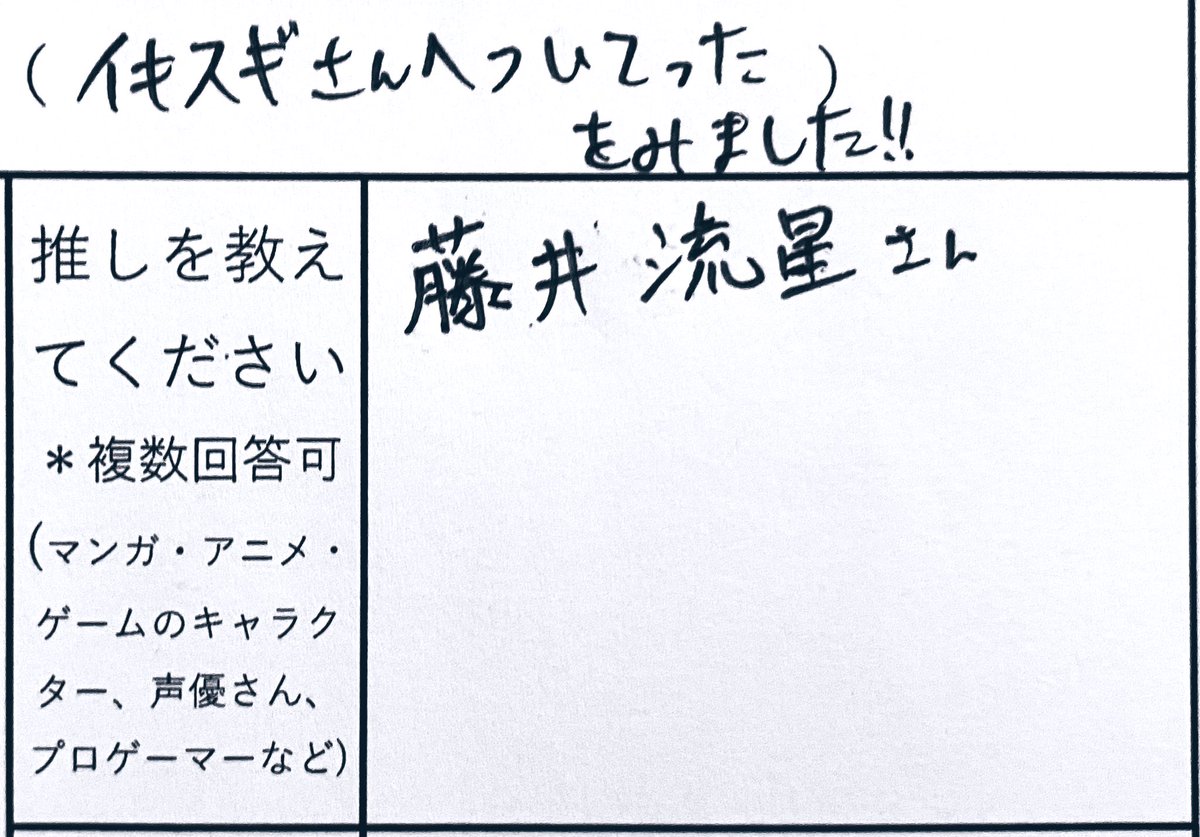 (イキスギさんへついてった)
をみました!!
推しを教え
てください
*複数回答可
(マンガ・アニメ・
ゲームのキャラク
ター、声優さん、
プロゲーマーなど)
藤井流星さん